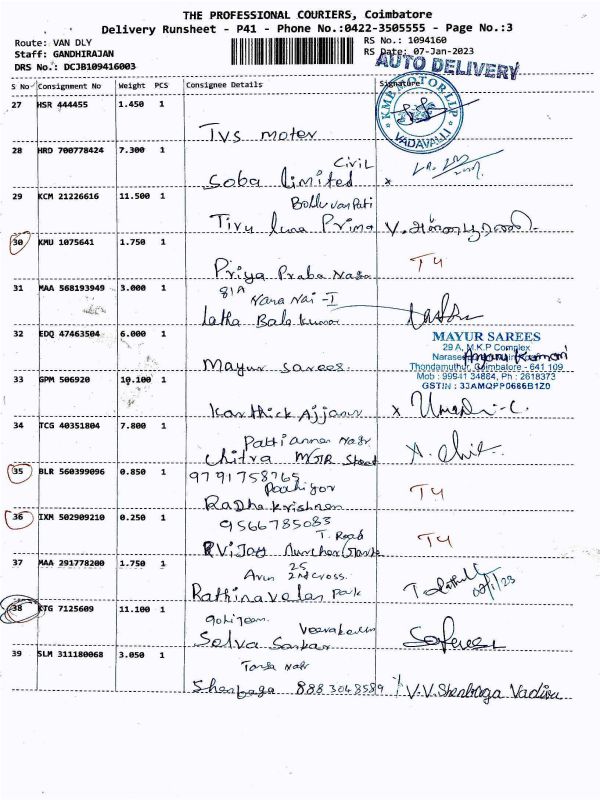 THE PROFESSIONAL COURIERS, Coimbatore
Delivery Runsheet - P41 - Phone No.:0422-3505555 - Page No.:3
Route: VAN DLY
RS No.: 1094160
Staff: GANDHIRAJAN
RS Date: 07-Jan-2023
DRS No.: DCJB109416003
AUTO DELIVERY
S No Consignment No Weight PCS Consignee Details Signature
27 HSR 444455 1.450 1
KMP MOTOR LLP
VADAVALLI
Tvs moter
28 HRD 700778424 7.300 1
Civil
Soba limited x
29 KCM 21226616 11.500 1
Tiru luna Prima V.
30 KMU 1075641 1.750 1
T4
Priya Praba Nagar
31 MAA 568193949 3.000 1
81A Nara Nai - I
Latha Bala kumar
32 EDQ 47463504 6.000 1
MAYUR SAREES
29 A, M.K.P Complex
Thondamuthur, Coimbatore - 641 109
Mob : 99941 34884, Ph : 2618373
GSTIN : 33AMQPP0666B1Z0
Mayur Sarees.
33 GPM 506920 10.100 1
Karthick Ajjanur x
34 TCG 40351804 7.800 1
Pattianner Nagr
Chitra MGR Street
35 BLR 560399096 0.850 1
9791758765
T4
Radha krishnan
36 IXM 502909210 0.250 1
9566785083
T. Road
T4
R Vijay
37 MAA 291778200 1.750 1
Arun 25 2nd cross.
Rathinavelan Park
09/1/23
38 KTG 7125609 11.100 1
Veerakeralam
Selva Sankar
39 SLM 311180068 3.050 1
Nagr
Shenbaga 8883048589 V.V.Shenbaga Vadivu